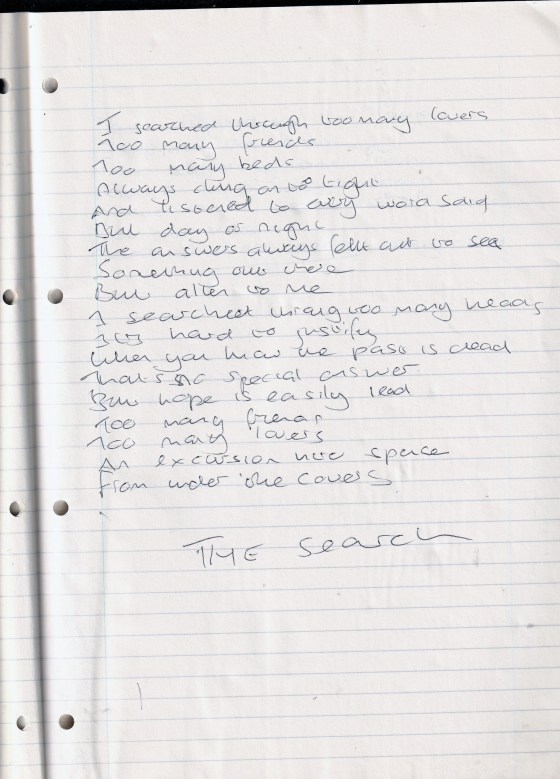 I searched through too many lovers
Too many friends
Too many beds
Always clung on to tight
And listened to every word said
But day or night
The answers always felt out to sea
Something out there
But alien to me
I searched through too many heads
It's hard to justify
When you know the past is dead
That's no special answer
But hope is easily lead
Too many friends
Too many lovers
An excursion into space
From under the covers
THE search